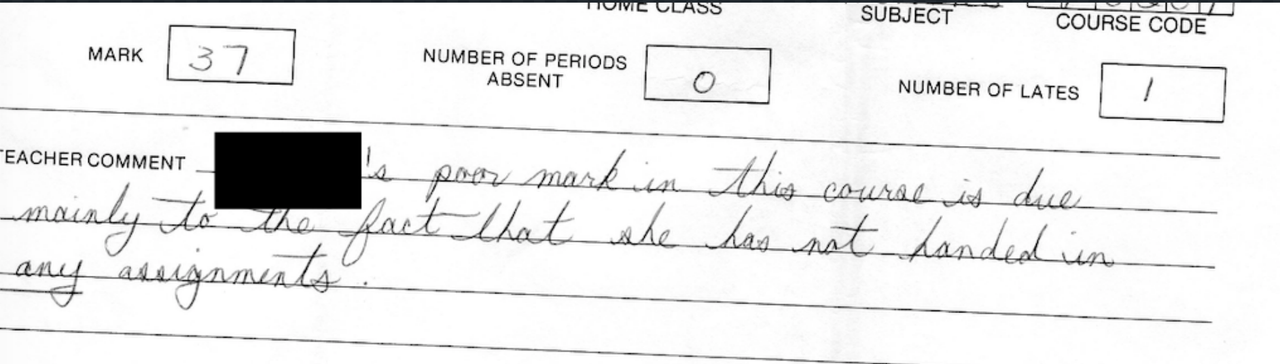 HOME CLASS
SUBJECT
COURSE CODE
MARK 37
NUMBER OF PERIODS ABSENT 0
NUMBER OF LATES 1
TEACHER COMMENT 's poor mark in this course is due
mainly to the fact that she has not handed in
any assignments.